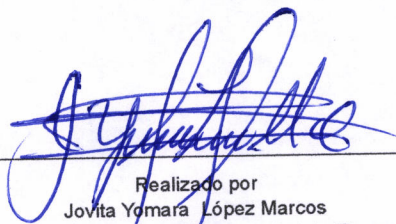 Realizado por
Jovita Yomara López Marcos